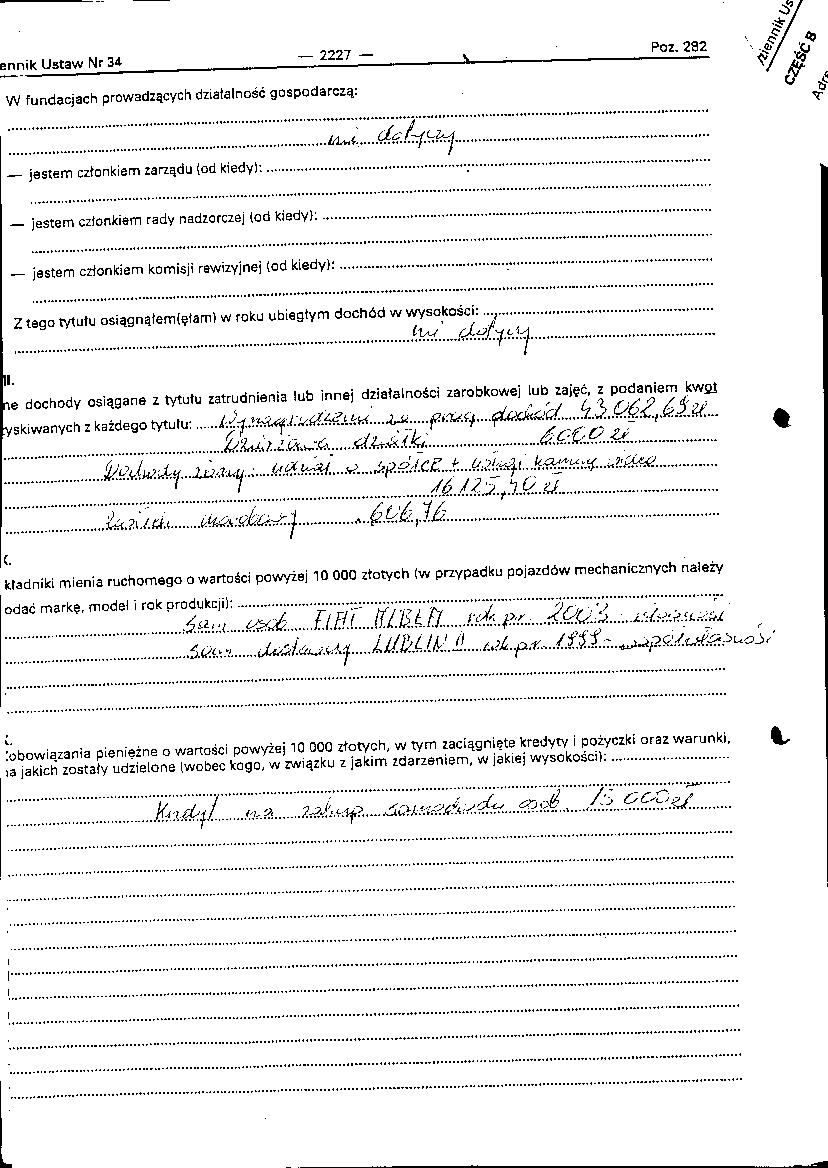 ennik Ustaw Nr 34 — 2227 — Poz. 282
W fundacjach prowadzących działalność gospodarczą:
nie dotyczy
— jestem członkiem zarządu (od kiedy):
— jestem członkiem rady nadzorczej (od kiedy):
— jestem członkiem komisji rewizyjnej (od kiedy):
Z tego tytułu osiągnąłem(ęłam) w roku ubiegłym dochód w wysokości:
nie dotyczy
II.
ne dochody osiągane z tytułu zatrudnienia lub innej działalności zarobkowej lub zajęć, z podaniem kwot
zyskiwanych z każdego tytułu: Wynagrodzenie za pracę dochód 43 062,69 zł
Dzierżawa działki 6000 zł
Dochody żony: udział w spółce + usługi kamerą video
16 125,40 zł
Zasiłek chorobowy 606,76
kładniki mienia ruchomego o wartości powyżej 10 000 złotych (w przypadku pojazdów mechanicznych należy
odać markę, model i rok produkcji):
sam osob FIAT ALBEA rok pr. 2003 - własność
sam dostawczy LUBLIN II rok pr. 1999 - współwłasność
obowiązania pieniężne o wartości powyżej 10 000 złotych, w tym zaciągnięte kredyty i pożyczki oraz warunki,
na jakich zostały udzielone (wobec kogo, w związku z jakim zdarzeniem, w jakiej wysokości):
Kredyt na zakup samochodu osob 15 000 zł
ziennik Us
CZĘŚĆ B
Adre